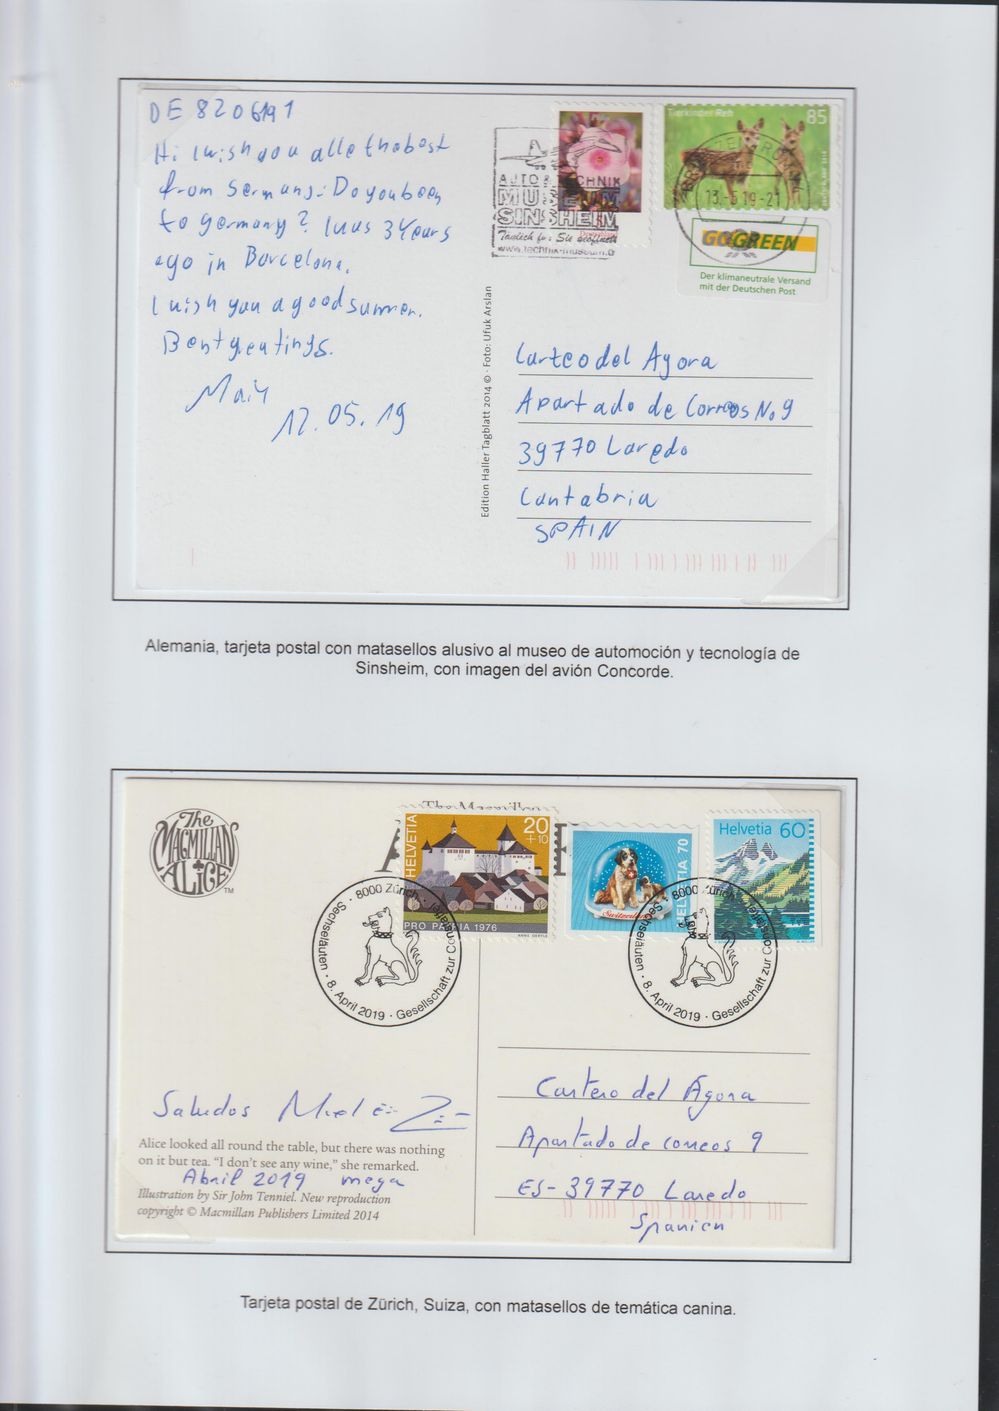 DE 8206191
Hi I wish you alle the best
from Germany. Do you been
to Germany? I was 3 Years
ago in Barcelona.
I wish you a good summer.
Best greatings.
12.05.19
AUTO & TECHNIK
MUSEUM
SINSHEIM
Täglich für Sie geöffnet
www.technik-museum.d
Tierkinder Reh
85
13.-5.19-21
GOGREEN
Der klimaneutrale Versand
mit der Deutschen Post
Edition Haller Tagblatt 2014 © · Foto: Ufuk Arslan
Carteo del Agora
Apartado de Correos No 9
39770 Laredo
Cantabria
SPAIN
Alemania, tarjeta postal con matasellos alusivo al museo de automoción y tecnología de
Sinsheim, con imagen del avión Concorde.
The
MACMILLAN
ALICE
TM
HELVETIA
20
+10
PRO PATRIA 1976
HELVETIA 70
Switzerland
Helvetia 60
8000 Zürich
Sechseläuten · 8. April 2019 · Gesellschaft zur Constaffel
8000 Zürich
Sechseläuten · 8. April 2019 · Gesellschaft zur Constaffel
Saludos
Alice looked all round the table, but there was nothing
on it but tea. “I don’t see any wine,” she remarked.
Abril 2019 mega
Illustration by Sir John Tenniel. New reproduction
copyright © Macmillan Publishers Limited 2014
Cartero del Ágora
Apartado de correos 9
ES-39770 Laredo
Spanien
Tarjeta postal de Zürich, Suiza, con matasellos de temática canina.